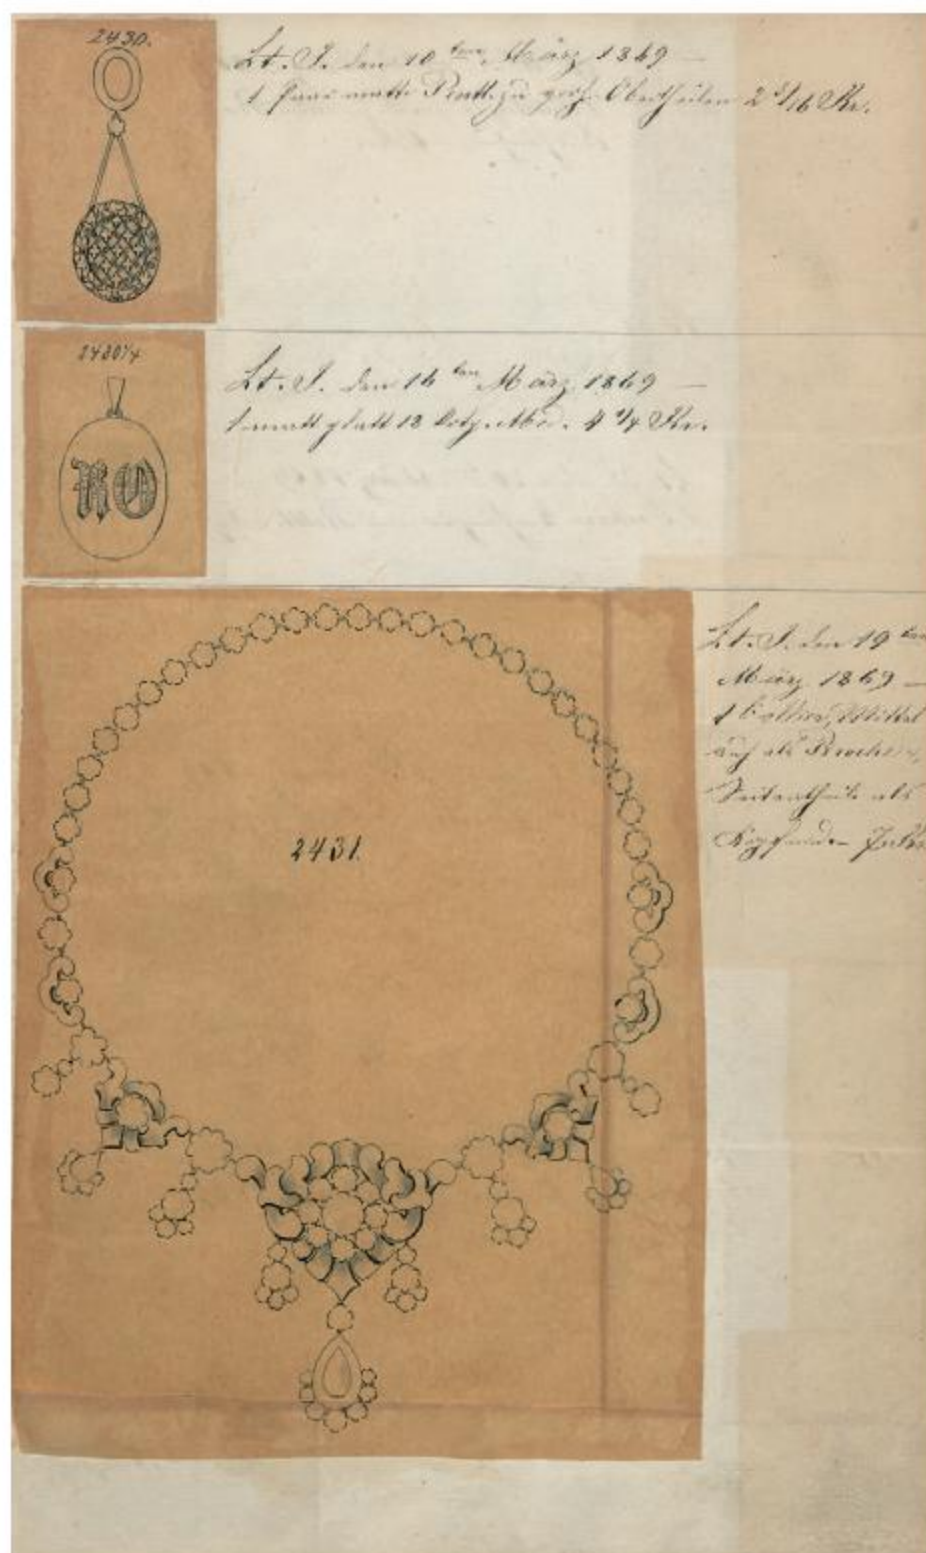 2430.
Lt. J. den 10 ten März 1869 —
1 Paar matte zu große Obertheilen 2 5/16 Kr.
2430 1/4
RO
Lt. J. den 16 ten März 1869 —
1 matt glatt 18 4 1/4 Kr.
2431.
Lt. J. den 19 ten
März 1869 —
1 Collier, Mittel
auch als Broche
Seitentheile als